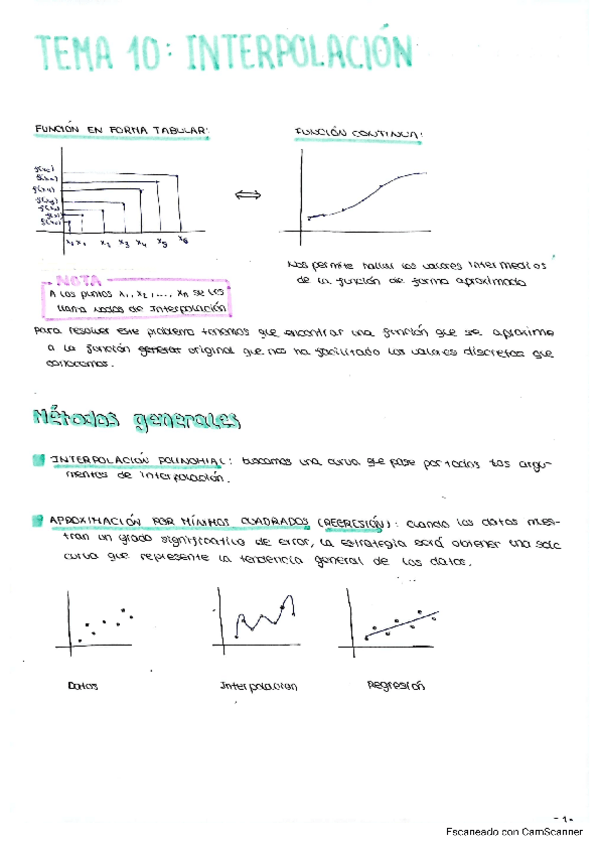 TEMA 10: INTERPOLACIÓN
FUNCIÓN EN FORMA TABULAR:
FUNCIÓN CONTINUA:
Nos permite hallar los valores intermedios
de la función de forma aproximada
NOTA
A los puntos x₁, x₂, ..., xₙ se les
llama nodos de Interpolación
Para resolver este problema tenemos que encontrar una función que se aproxime
a la función generar original que nos ha facilitado los valores discretos que
conocemos.
Métodos generales
INTERPOLACIÓN POLINOMIAL: buscamos una curva que pase por todos los argu-
mentos de interpolación.
APROXIMACIÓN POR MÍNIMOS CUADRADOS (REGRESIÓN): Cuando los datos mues-
tran un grado significativo de error, la estrategia será obtener una sola
curva que represente la tendencia general de los datos.
Datos
Interpolación
Regresión
-1-
Escaneado con CamScanner